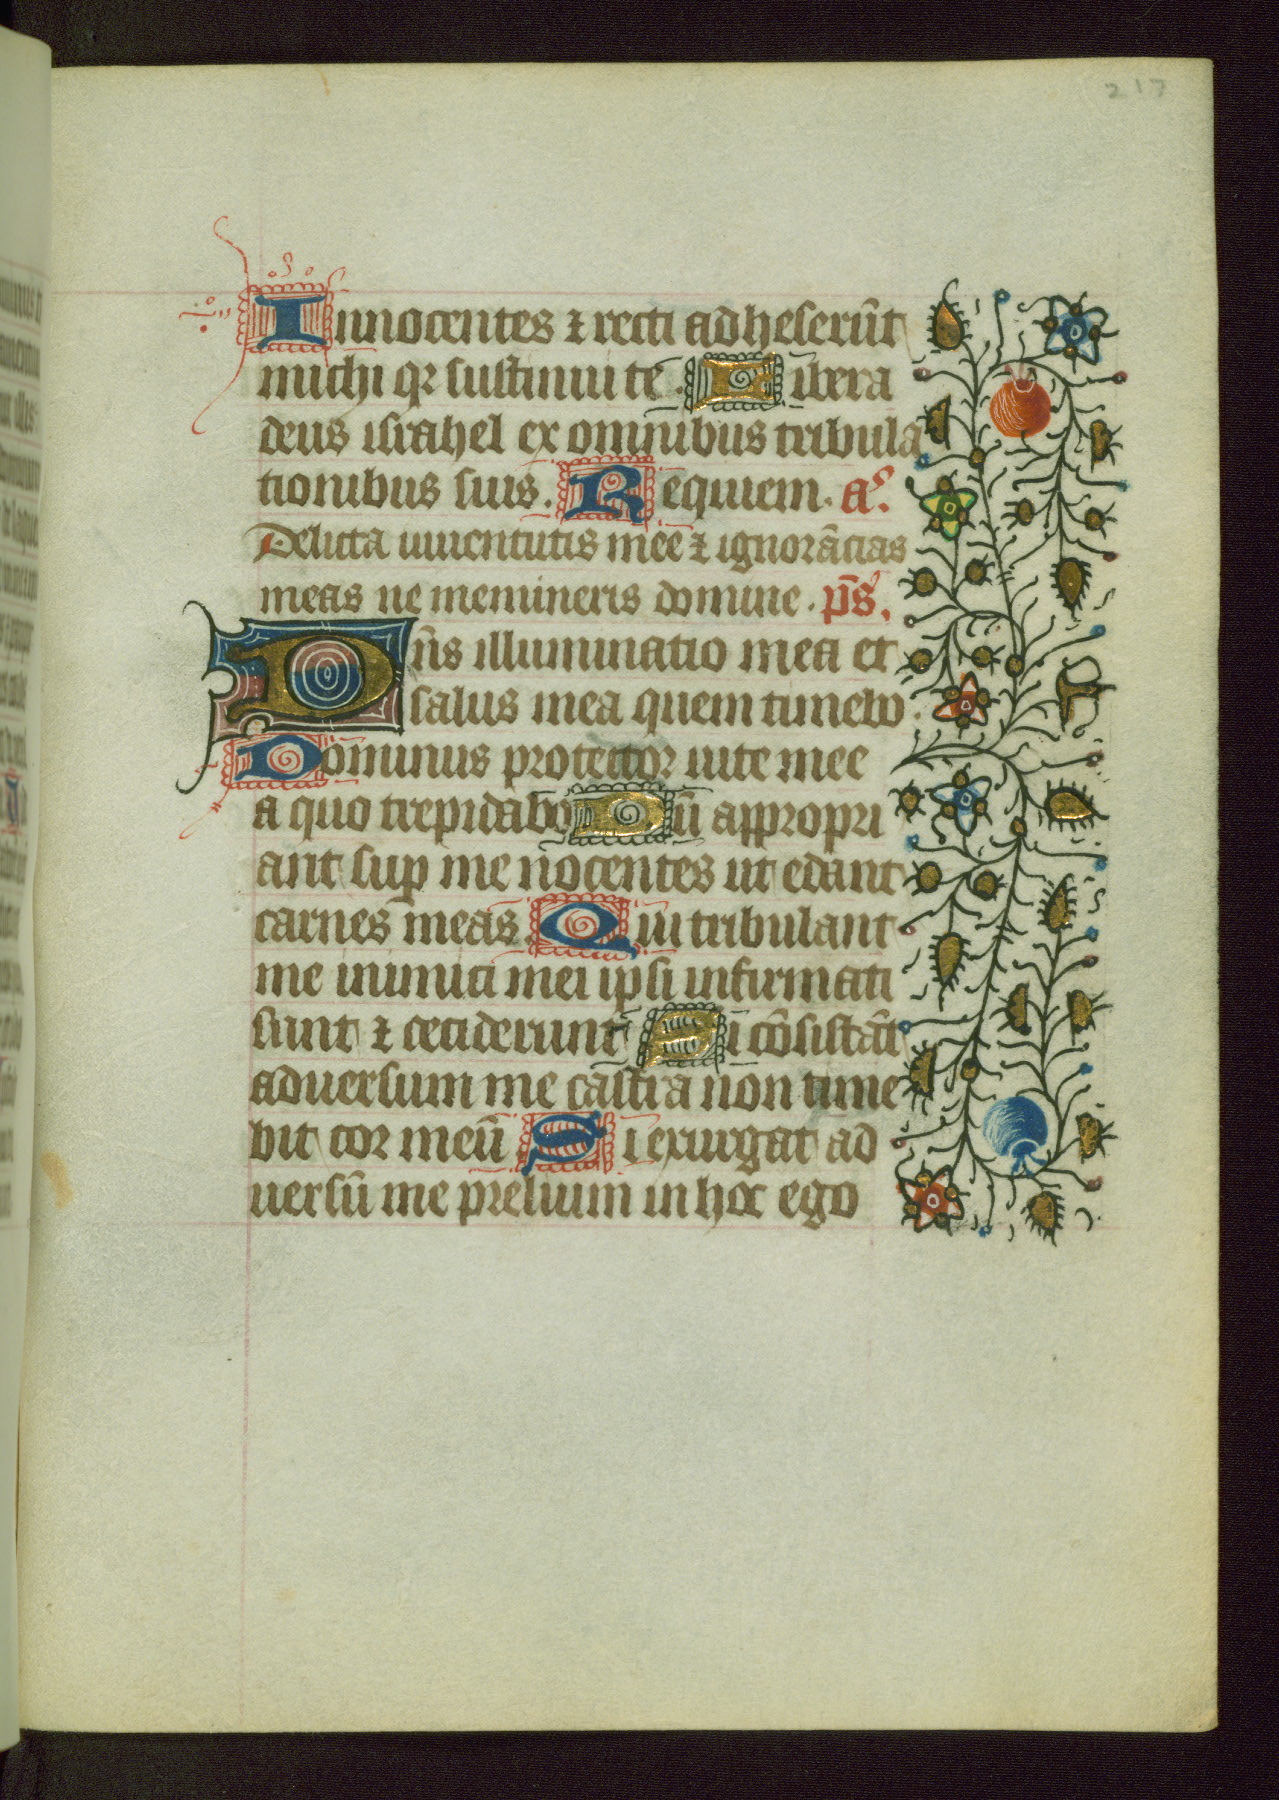 217
Innocentes ⁊ recti adheserūt
michi qꝛ sustinui te. Libera
deus israhel ex omnibus tribula
tionibus suis. Requiem. aᵒ.
Delicta iuuentutis mee ⁊ ignorācias
meas ne memineris domine. p̄s.
Dn̄s illuminatio mea et
salus mea quem timebo.
Dominus protector uite mee
a quo trepidabo Dū appropri
ant suꝑ me nocentes ut edant
carnes meas Qui tribulant
me inimici mei ipsi infirmati
sunt ⁊ ceciderunt Si cōsistāt
aduersum me castra non time
bit cor meū Si exurgat ad
uersū me prelium in hoc ego